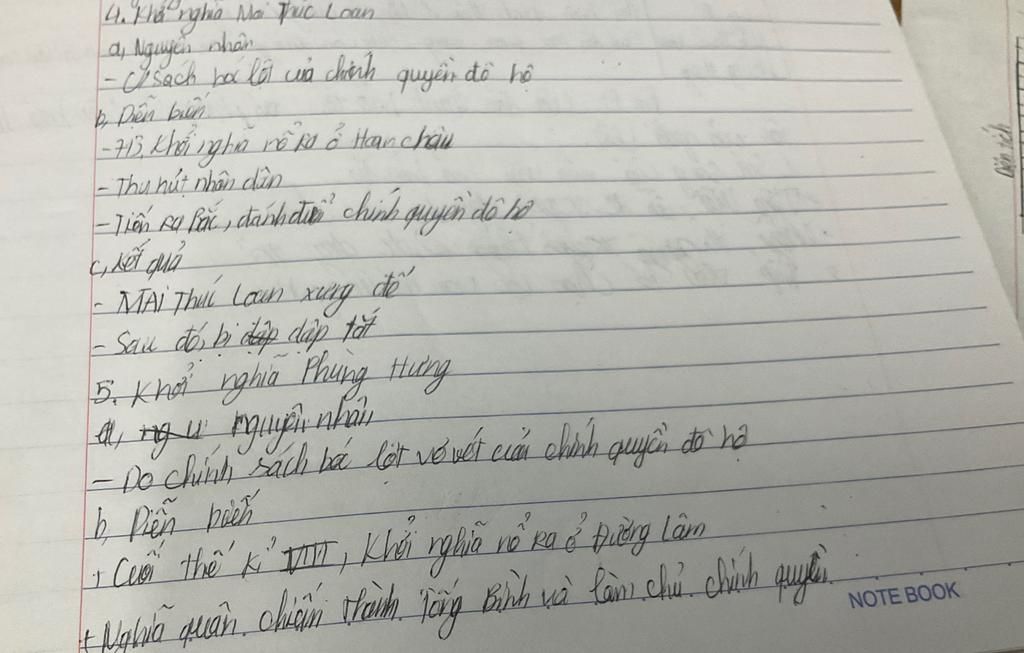 4. Khởi nghĩa Mai Thúc Loan
a, Nguyên nhân
- C/sách bóc lột của chính quyền đô hộ
b, Diễn biến
- 713, Khởi nghĩa nổ ra ở Hoan châu
- Thu hút nhân dân
- Tiến ra Bắc, đánh đuổi chính quyền đô hộ
c, Kết quả
- MAi Thúc Loan xưng đế
- Sau đó, bị dập dập tắt
5. Khởi nghĩa Phùng Hưng
a, ng u nguyên nhân
- Do chính sách bóc lột vơ vét của chính quyền đô hộ
b, Diễn biến
+ Cuối thế kỉ VIII, Khởi nghĩa nổ ra ở Đường Lâm
+ Nghĩa quân chiếm thành Tống Bình và làm chủ chính quyền
NOTE BOOK
Diện tích